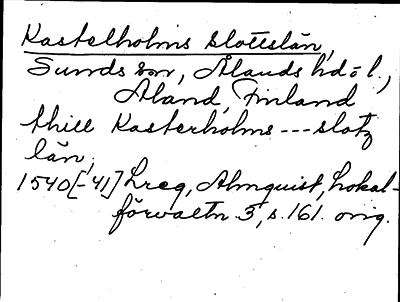 Kastelholms slottslän,
Sunds sn, Ålands hd o l.,
Åland, Finland
thill Kasterholms --- slotz
län,
1540[-41] Lreg, Almquist, Lokal-
förvaltn 3, s. 161. orig.